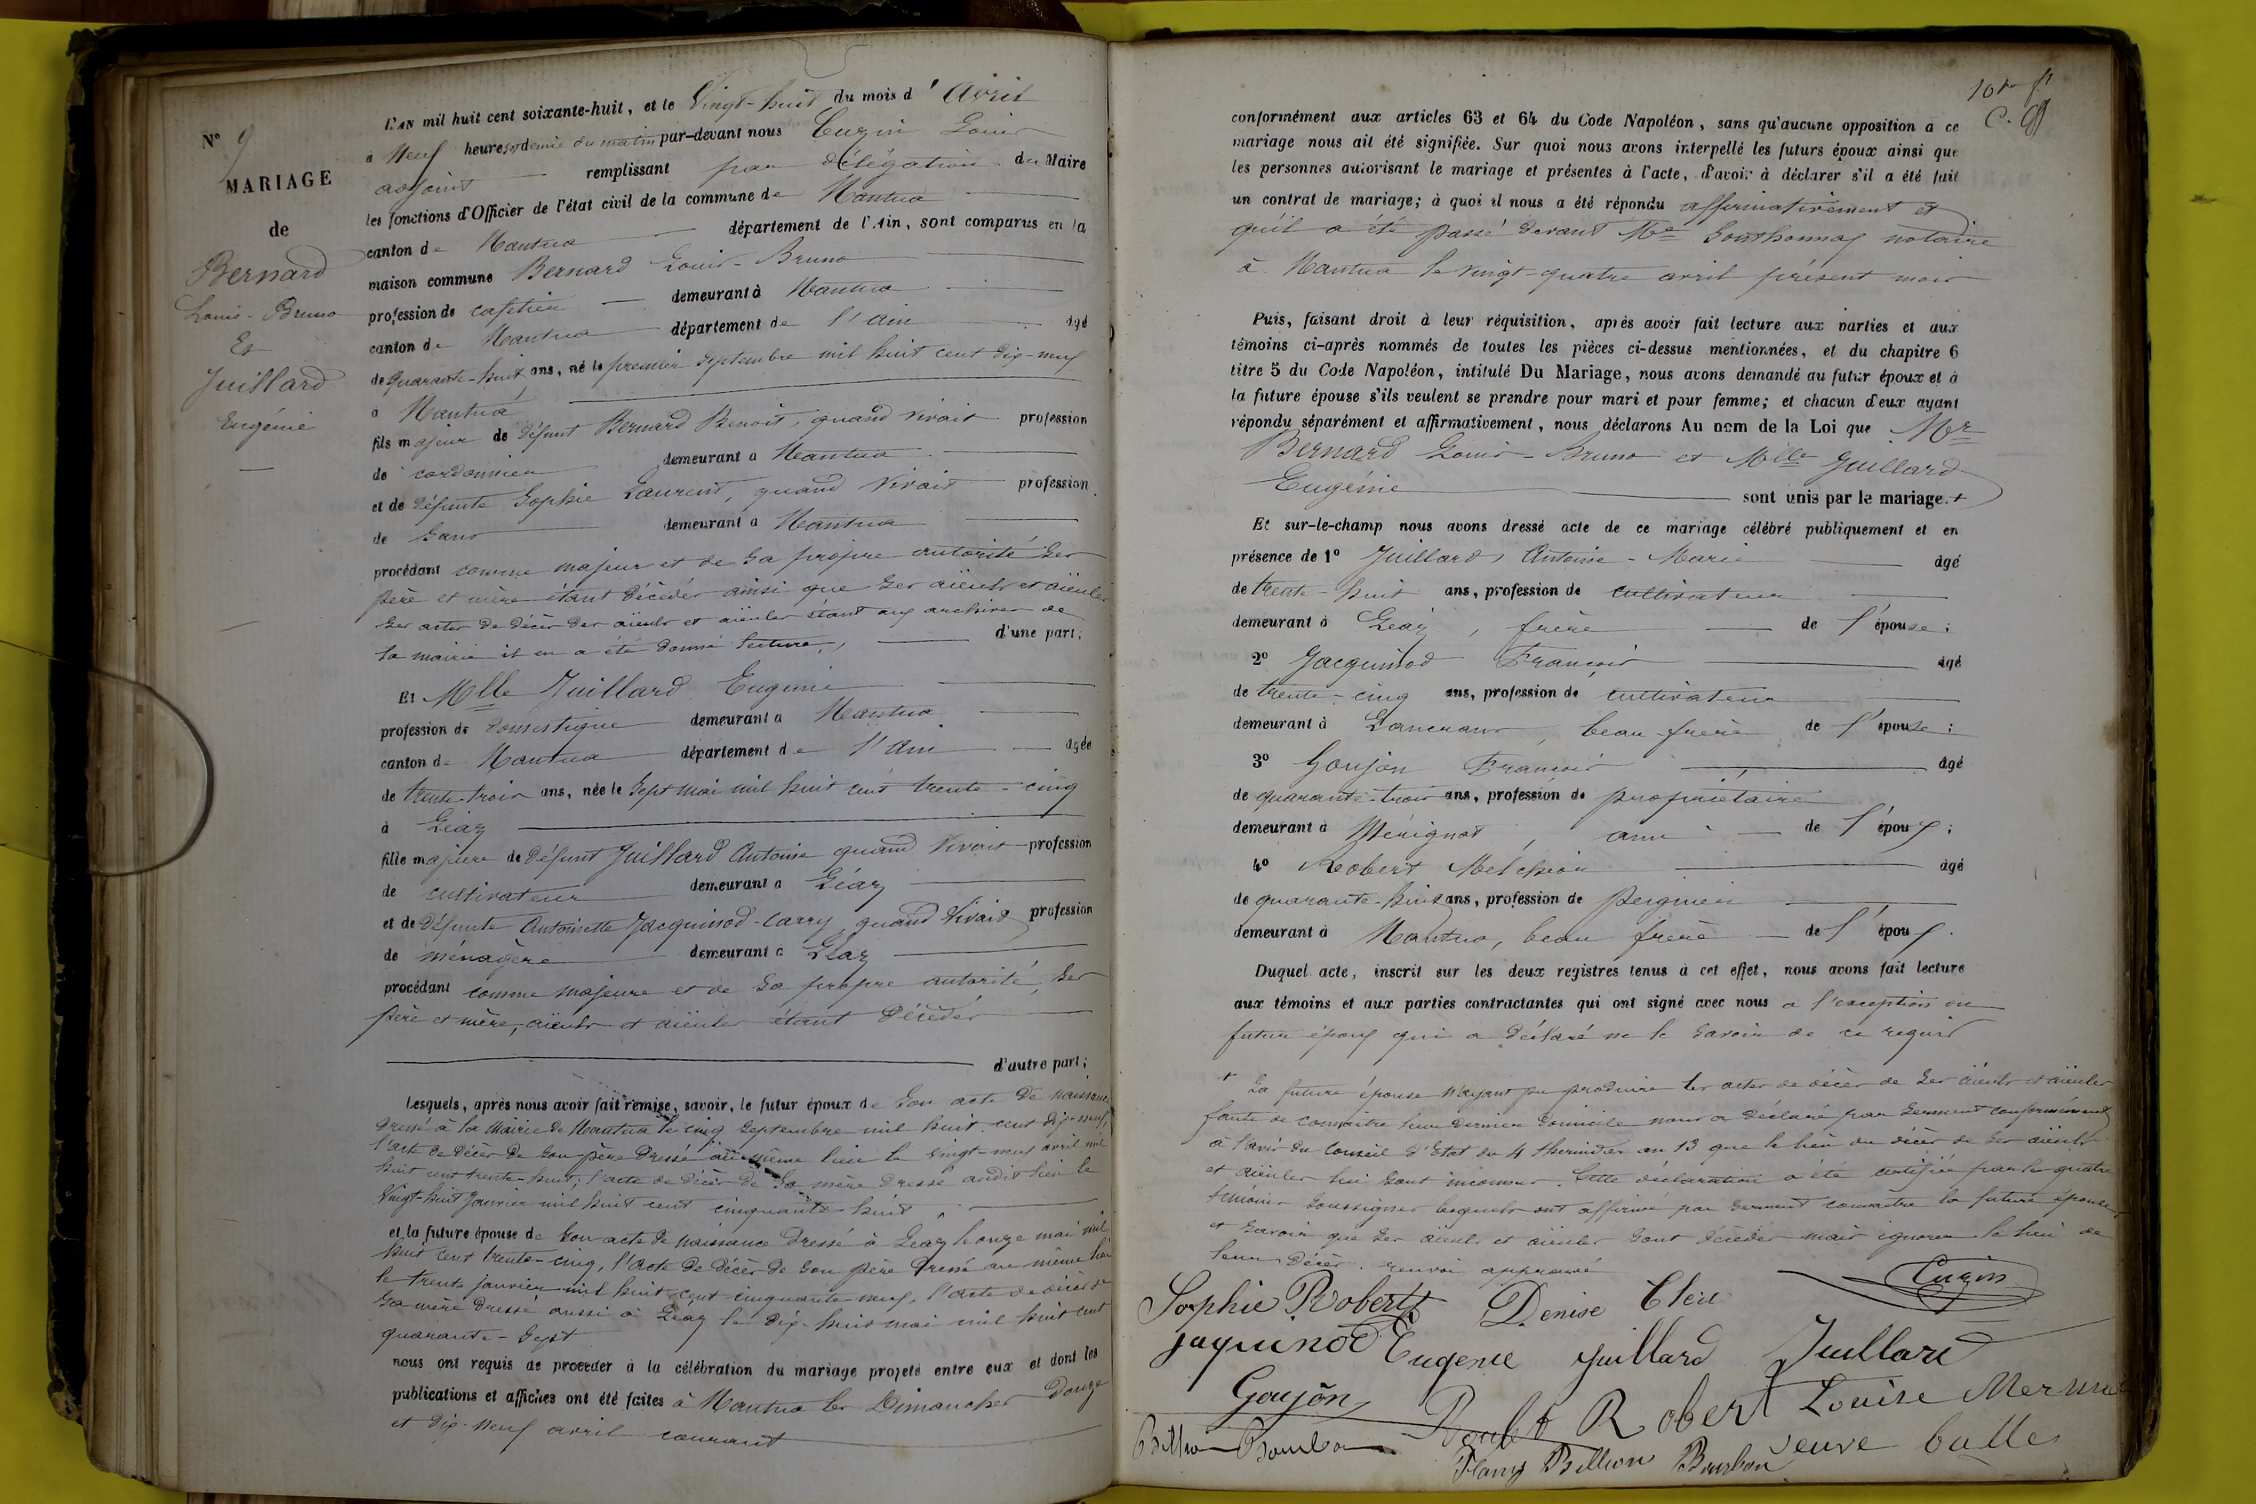 N° 9
MARIAGE
de
Bernard
Louis-Bruno
Et
Juillard
Eugénie
L'AN mil huit cent soixante-huit, et le Vingt-huit du mois d'Avril
à Neuf heures et demie du matin par-devant nous Cuzin Louis
adjoint remplissant par délégation du Maire
les fonctions d'Officier de l'état civil de la commune de Nantua
canton de Nantua département de l'Ain, sont comparus en la
maison commune Bernard Louis-Bruno
profession de cafetier demeurant à Nantua
canton de Nantua département de l'Ain âgé
de quarante-huit ans, né le premier septembre mil huit cent dix-neuf
à Nantua
fils majeur de défunt Bernard Benoit, quand vivait profession
de cordonnier demeurant à Nantua
et de défunte Sophie Laurent, quand vivait profession
de sans demeurant à Nantua
procédant comme majeur et de sa propre autorité ses
père et mère étant décédés ainsi que ses aïeuls et aïeules
les actes de décès des aïeuls et aïeules étant aux archives de
la mairie il en a été donné lecture, d'une part;
Et Mlle Juillard Eugénie
profession de domestique demeurant à Nantua
canton de Nantua département de l'Ain âgée
de trente-trois ans, née le sept mai mil huit cent trente-cinq
à Léaz
fille majeure de défunt Juillard Antoine quand vivait profession
de cultivateur demeurant à Léaz
et de défunte Antoinette Jacquinod-Carry, quand vivait profession
de ménagère demeurant à Léaz
procédant comme majeure et de sa propre autorité, ses
père et mère, aïeuls et aïeules étant décédés
d'autre part;
Lesquels, après nous avoir fait remise, savoir, le futur époux de son acte de naissance
dressé à la Mairie de Nantua le cinq septembre mil huit cent dix-neuf,
l'acte de décès de son père dressé au même lieu le vingt-neuf avril mil
huit cent trente-huit; l'acte de décès de sa mère dressé audit lieu le
vingt-huit janvier mil huit cent cinquante-huit
et la future épouse de son acte de naissance dressé à Léaz le onze mai mil
huit cent trente-cinq, l'acte de décès de son père dressé au même lieu
le trente janvier mil huit cent cinquante-neuf, l'acte de décès de
sa mère dressé aussi à Léaz le dix-huit mai mil huit cent
quarante-sept
nous ont requis de procéder à la célébration du mariage projeté entre eux et dont les
publications et affiches ont été faites à Nantua les Dimanches douze
et dix-neuf avril courant
conformément aux articles 63 et 64 du Code Napoléon, sans qu'aucune opposition à ce
mariage nous ait été signifiée. Sur quoi nous avons interpellé les futurs époux ainsi que
les personnes autorisant le mariage et présentes à l'acte, d'avoir à déclarer s'il a été fait
un contrat de mariage; à quoi il nous a été répondu affirmativement et
qu'il a été passé devant Me Gouthonnay notaire
à Nantua le vingt-quatre avril présent mois
Puis, faisant droit à leur réquisition, après avoir fait lecture aux parties et aux
témoins ci-après nommés de toutes les pièces ci-dessus mentionnées, et du chapitre 6
titre 5 du Code Napoléon, intitulé Du Mariage, nous avons demandé au futur époux et à
la future épouse s'ils veulent se prendre pour mari et pour femme; et chacun d'eux ayant
répondu séparément et affirmativement, nous déclarons Au nom de la Loi que Mr
Bernard Louis-Bruno et Mlle Juillard
Eugénie sont unis par le mariage.+
Et sur-le-champ nous avons dressé acte de ce mariage célébré publiquement et en
présence de 1° Juillard, Antoine-Marie âgé
de trente-huit ans, profession de cultivateur
demeurant à Léaz, frère de l'épouse;
2° Jacquinod François âgé
de trente-cinq ans, profession de cultivateur
demeurant à Lancrans, beau-frère de l'épouse;
3° Goujon François âgé
de quarante-trois ans, profession de propriétaire
demeurant à Mérignat, ami de l'époux;
4° Robert Melchior âgé
de quarante-huit ans, profession de peignier
demeurant à Nantua, beau frère de l'époux.
Duquel acte, inscrit sur les deux registres tenus à cet effet, nous avons fait lecture
aux témoins et aux parties contractantes qui ont signé avec nous à l'exception du
futur époux qui a déclaré ne le savoir de ce requis
+ La future épouse n'ayant pu produire les actes de décès de ses aïeuls et aïeules
faute de connaître leur dernier domicile nous a déclaré par serment conformément
à l'avis du Conseil d'Etat du 4 thermidor an 13 que le lieu du décès de ses aïeuls
et aïeules lui sont inconnus. Cette déclaration a été certifiée par les quatre
témoins soussignés lesquels ont affirmé par serment connaître la future épouse
et savoir que ses aïeuls et aïeules sont décédés mais ignorer le lieu de
leur décès. renvoi approuvé
Cuzin
Sophie Robert Denise Cleu
jaquinod Eugenie juillard Juillard
Goujon Robert Louise Mermet
Billion Bourbon Fany Billion Bourbon veuve